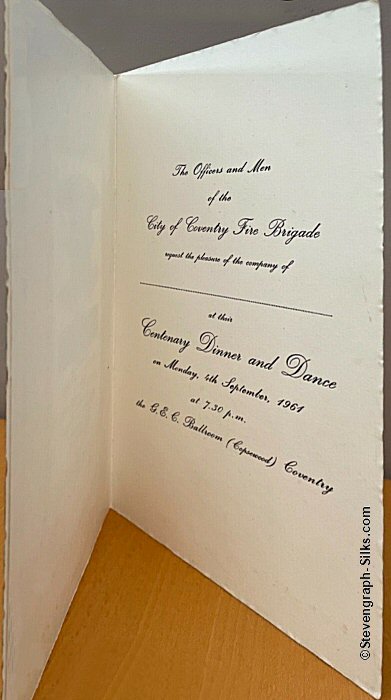 The Officers and Men
of the
City of Coventry Fire Brigade
request the pleasure of the company of
at their
Centenary Dinner and Dance
on Monday, 4th September, 1961
at 7.30 p.m.
the G.E.C. Ballroom (Copsewood) Coventry
©Stevengraph-Silks.com